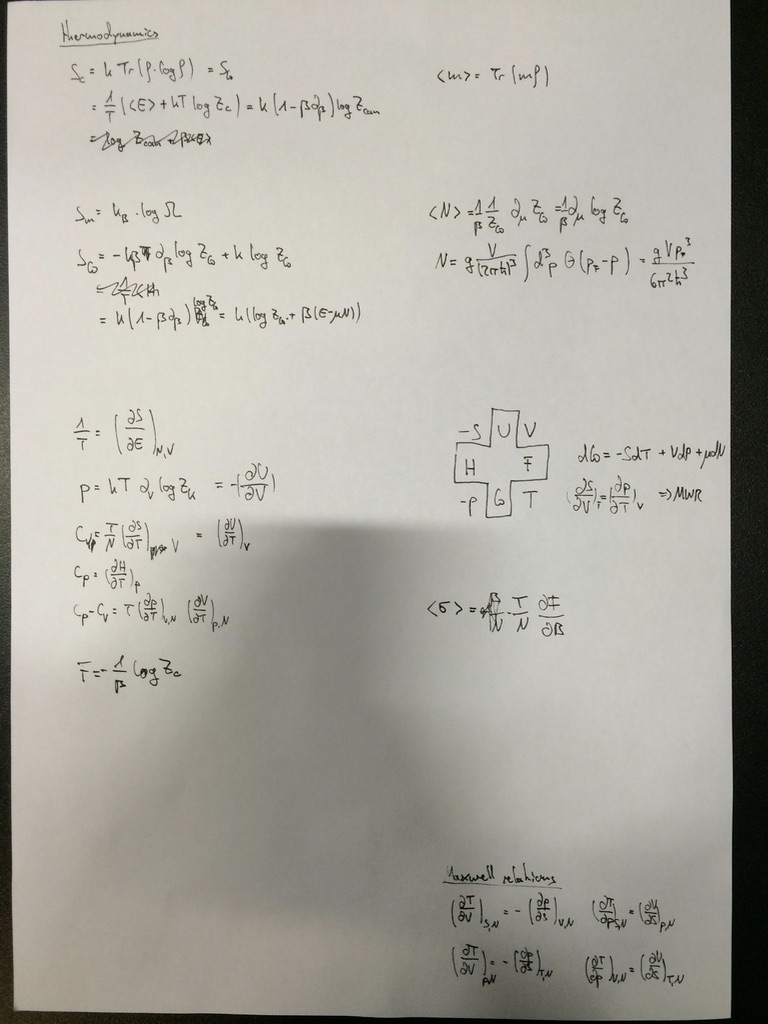 thermodynamics
S_c = k Tr(ρ·log ρ) = S_G
= 1/T (<E> + kT log Z_c) = k(1 - β∂_β) log Z_can
<m> = Tr(mρ)
S_m = k_B · log Ω
S_G = -kβ ∂_β log Z_G + k log Z_G
= k(1 - β∂_β) log Z_G = k(log Z_G + β(E - μN))
<N> = 1/β 1/Z_G ∂_μ Z_G = 1/β ∂_μ log Z_G
N = g V/(2πħ)^3 ∫ d^3p Θ(p_F - p) = g V p_F^3 / 6π^2ħ^3
1/T = (∂S/∂E)_N,V
p = kT ∂_V log Z_k = -(∂U/∂V)
C_V = T/N (∂S/∂T)_V = (∂U/∂T)_V
C_p = (∂H/∂T)_p
C_p - C_V = T (∂p/∂T)_V,N (∂V/∂T)_p,N
F = - 1/β log Z_c
-S U V
H F
-p G T
dG = -SdT + Vdp + μdN
(∂S/∂V)_T = (∂p/∂T)_V => MWR
<σ> = - T/N ∂F/∂B
Maxwell relations
(∂T/∂V)_S,N = - (∂p/∂S)_V,N (∂T/∂p)_S,N = (∂V/∂S)_p,N
(∂T/∂V)_p,N = - (∂p/∂S)_T,N (∂T/∂p)_V,N = (∂V/∂S)_T,N